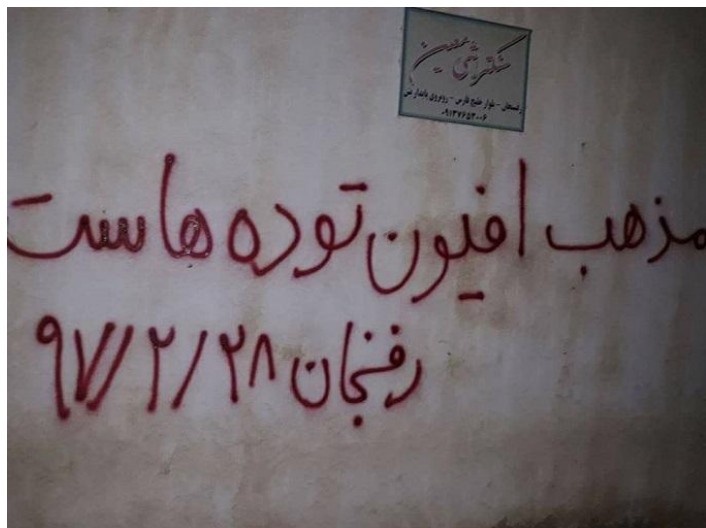 سنگتراشی
رفسنجان - بلوار خلیج فارس - روبروی
۰۹۱۳۷۶۵۳۰۰۶
مذهب افیون توده هاست
رفسنجان ۹۷/۲/۲۸